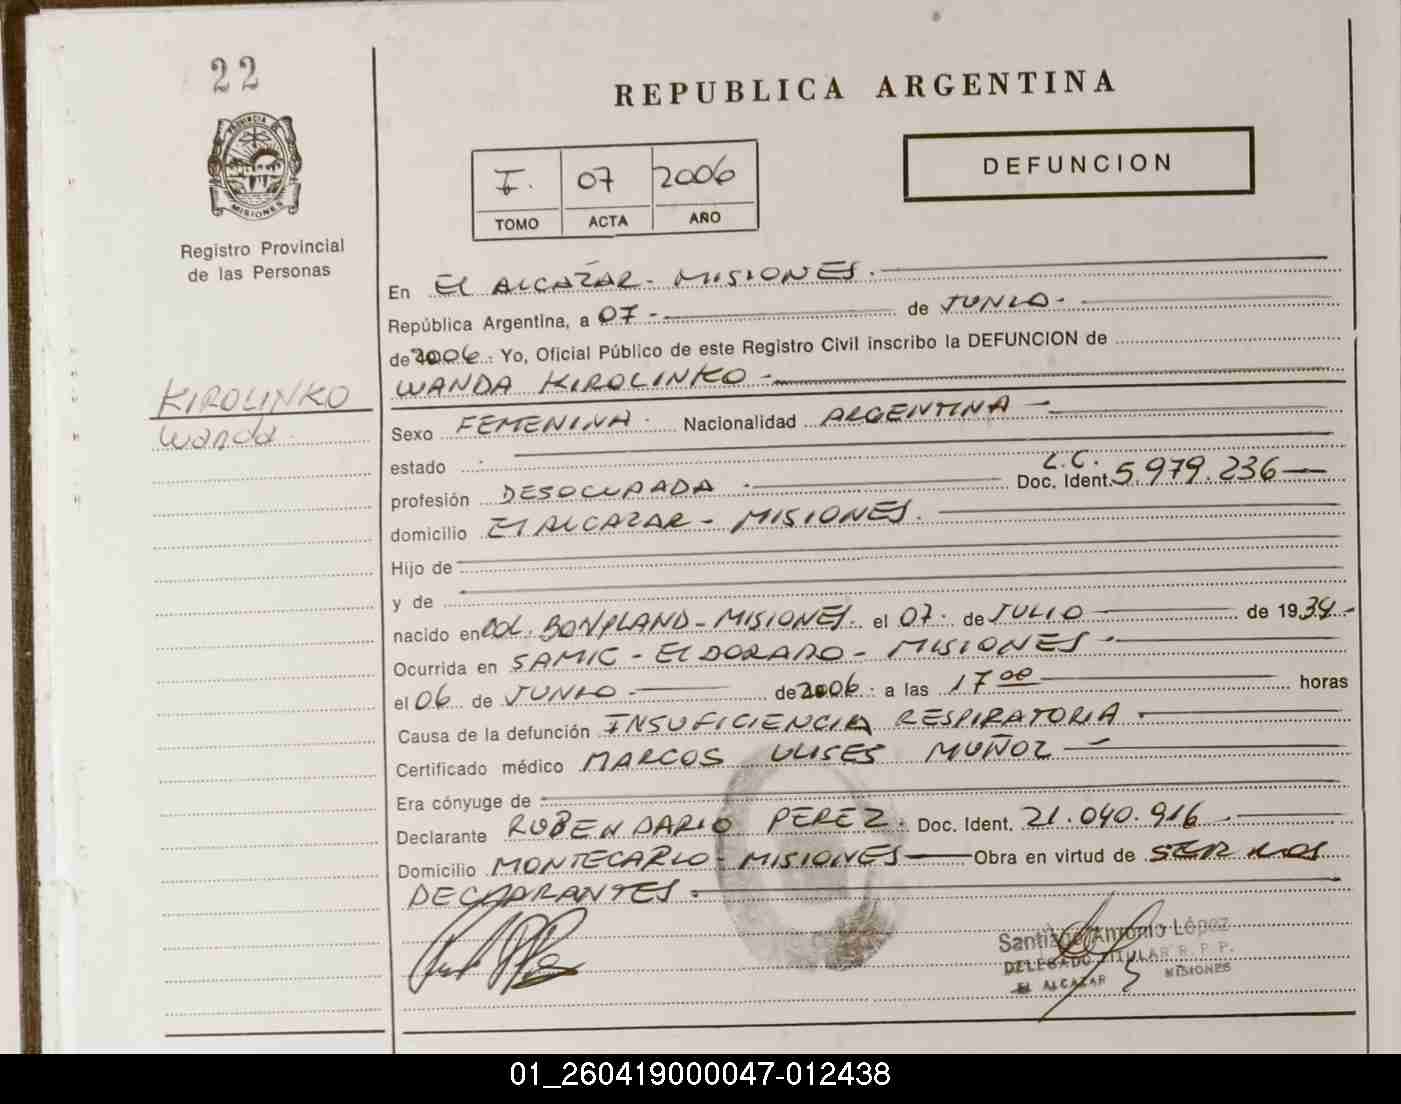 22
REPUBLICA ARGENTINA
DEFUNCION
I. 07 2006
TOMO ACTA AÑO
PROVINCIA DE
MISIONES
Registro Provincial
de las Personas
En EL ALCAZAR - MISIONES.
República Argentina, a 07 - de JUNIO -
de 2006. Yo, Oficial Público de este Registro Civil inscribo la DEFUNCION de
WANDA KIROLINKO -
KIROLINKO
Wanda
Sexo FEMENINA. Nacionalidad ARGENTINA -
estado
profesión DESOCUPADA L.C. Doc. Ident. 5.979.236
domicilio El ALCAZAR - MISIONES.
Hijo de
y de
nacido en COL. BONPLAND - MISIONES. el 07. de JULIO de 1934 -
Ocurrida en SAMIC - ElDORADO - MISIONES
el 06 de JUNIO - de 2006. a las 17 00 horas
Causa de la defunción INSUFICIENCIA RESPIRATORIA
Certificado médico MARCOS ULISES MUÑOZ
Era cónyuge de
Declarante RUBEN DARIO PEREZ. Doc. Ident. 21.040.916
Domicilio MONTECARLO - MISIONES Obra en virtud de SER LOS
DECLARANTES.
Santiago Antonio López
DELEGADO TITULAR R. P. P.
EL ALCAZAR MISIONES
01_260419000047-012438